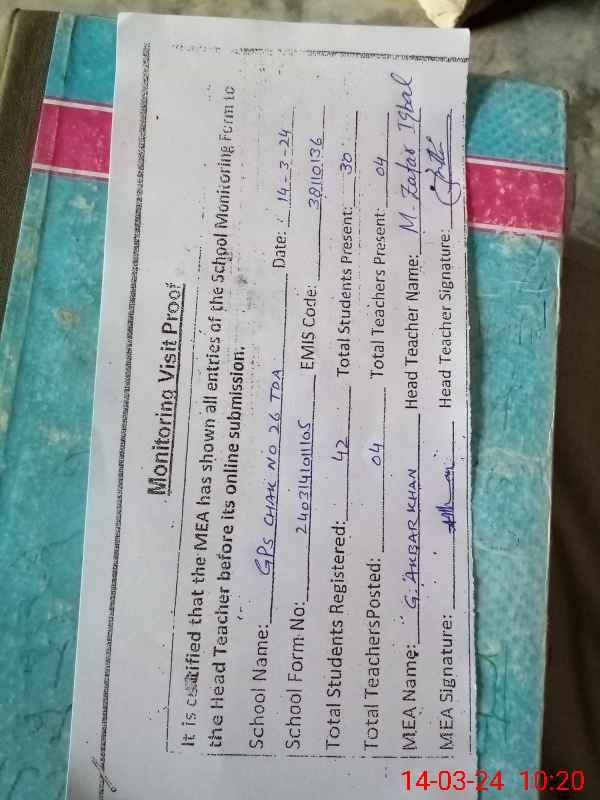 Monitoring Visit Proof
It is certified that the MEA has shown all entries of the School Monitoring Form to
the Head Teacher before its online submission.
School Name: GPS CHAK NO 26 TDA Date: 14-3-24
School Form No: 2403141011105 EMIS Code: 38110136
Total Students Registered: 42 Total Students Present: 30
Total TeachersPosted: 04 Total Teachers Present: 04
MEA Name: G. AKBAR KHAN Head Teacher Name: M. Zafar Iqbal
MEA Signature: Head Teacher Signature:
14-03-24 10:20